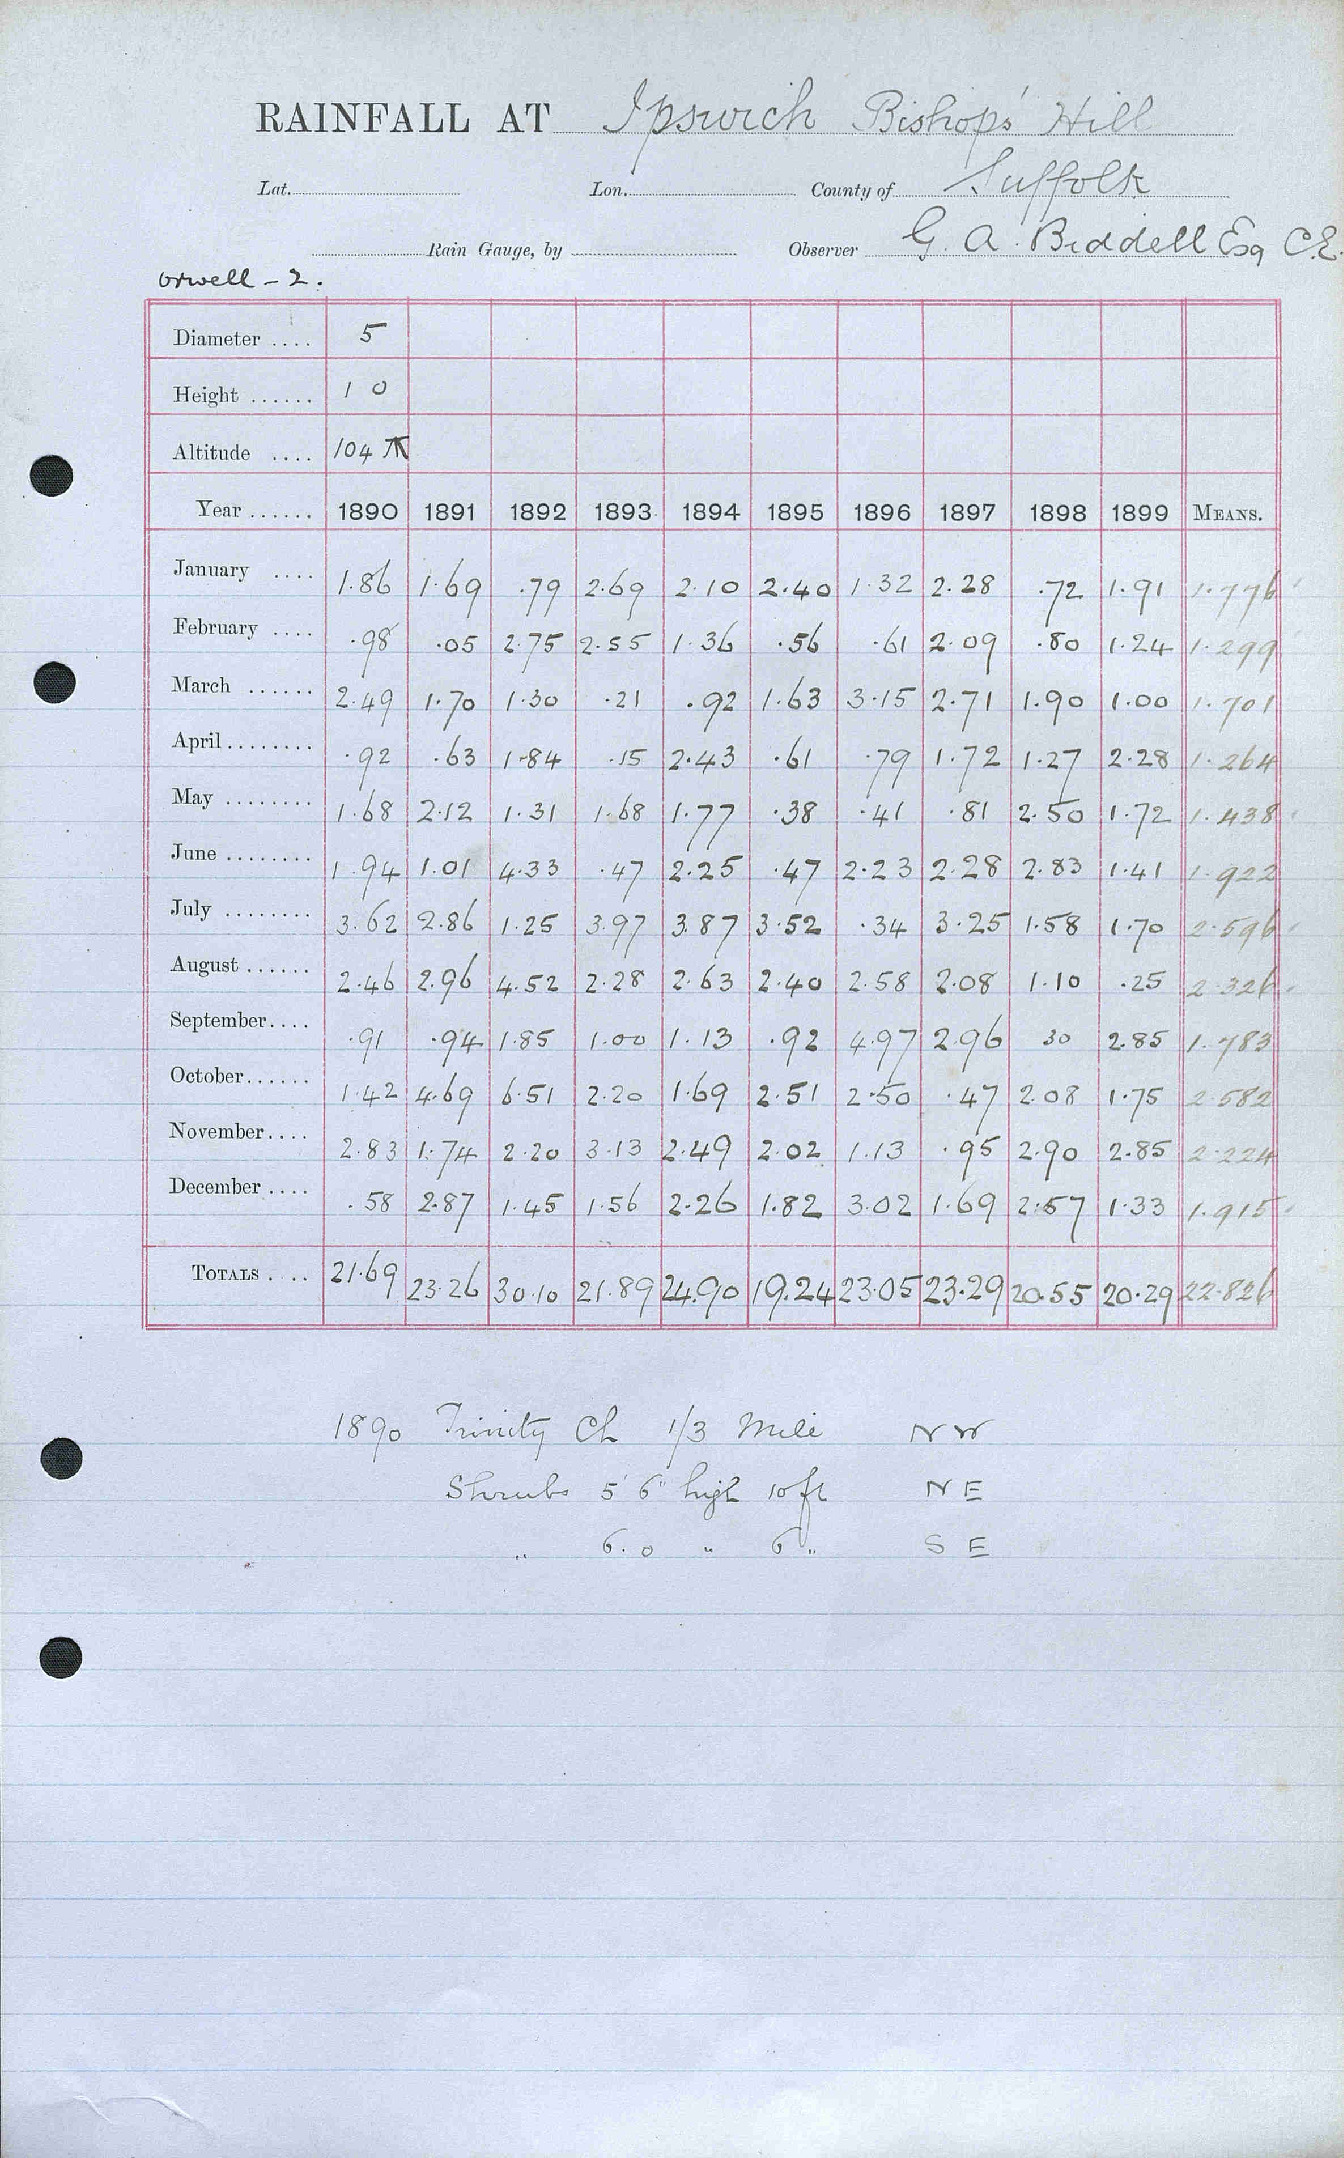 RAINFALL AT Ipswich Bishops' Hill
Lat. Lon. County of Suffolk
Rain Gauge, by Observer G. A. Biddell Esq C.E.
Orwell - 2.
Diameter .... 5
Height ...... 1 0
Altitude .... 104
Year ...... 1890 1891 1892 1893 1894 1895 1896 1897 1898 1899 MEANS.
January .... 1.86 1.69 .79 2.69 2.10 2.40 1.32 2.28 .72 1.91 1.776
February .... .98 .05 2.75 2.55 1.36 .56 .61 2.09 .80 1.24 1.299
March ...... 2.49 1.70 1.30 .21 .92 1.63 3.15 2.71 1.90 1.00 1.701
April ........ .92 .63 1.84 .15 2.43 .61 .79 1.72 1.27 2.28 1.264
May ........ 1.68 2.12 1.31 1.68 1.77 .38 .41 .81 2.50 1.72 1.438
June ........ 1.94 1.01 4.33 .47 2.25 .47 2.23 2.28 2.83 1.41 1.922
July ........ 3.62 2.86 1.25 3.97 3.87 3.52 .34 3.25 1.58 1.70 2.596
August ...... 2.46 2.96 4.52 2.28 2.63 2.40 2.58 2.08 1.10 .25 2.326
September.... .91 .94 1.85 1.00 1.13 .92 4.97 2.96 30 2.85 1.783
October...... 1.42 4.69 6.51 2.20 1.69 2.51 2.50 .47 2.08 1.75 2.582
November.... 2.83 1.74 2.20 3.13 2.49 2.02 1.13 .95 2.90 2.85 2.224
December .... .58 2.87 1.45 1.56 2.26 1.82 3.02 1.69 2.57 1.33 1.915
TOTALS .... 21.69 23.26 30.10 21.89 24.90 19.24 23.05 23.29 20.55 20.29 22.826
1890 Trinity Ch 1/3 Mile NW
Shrubs 5' 6" high 10 ft NE
" 6.0 " 6 " S E